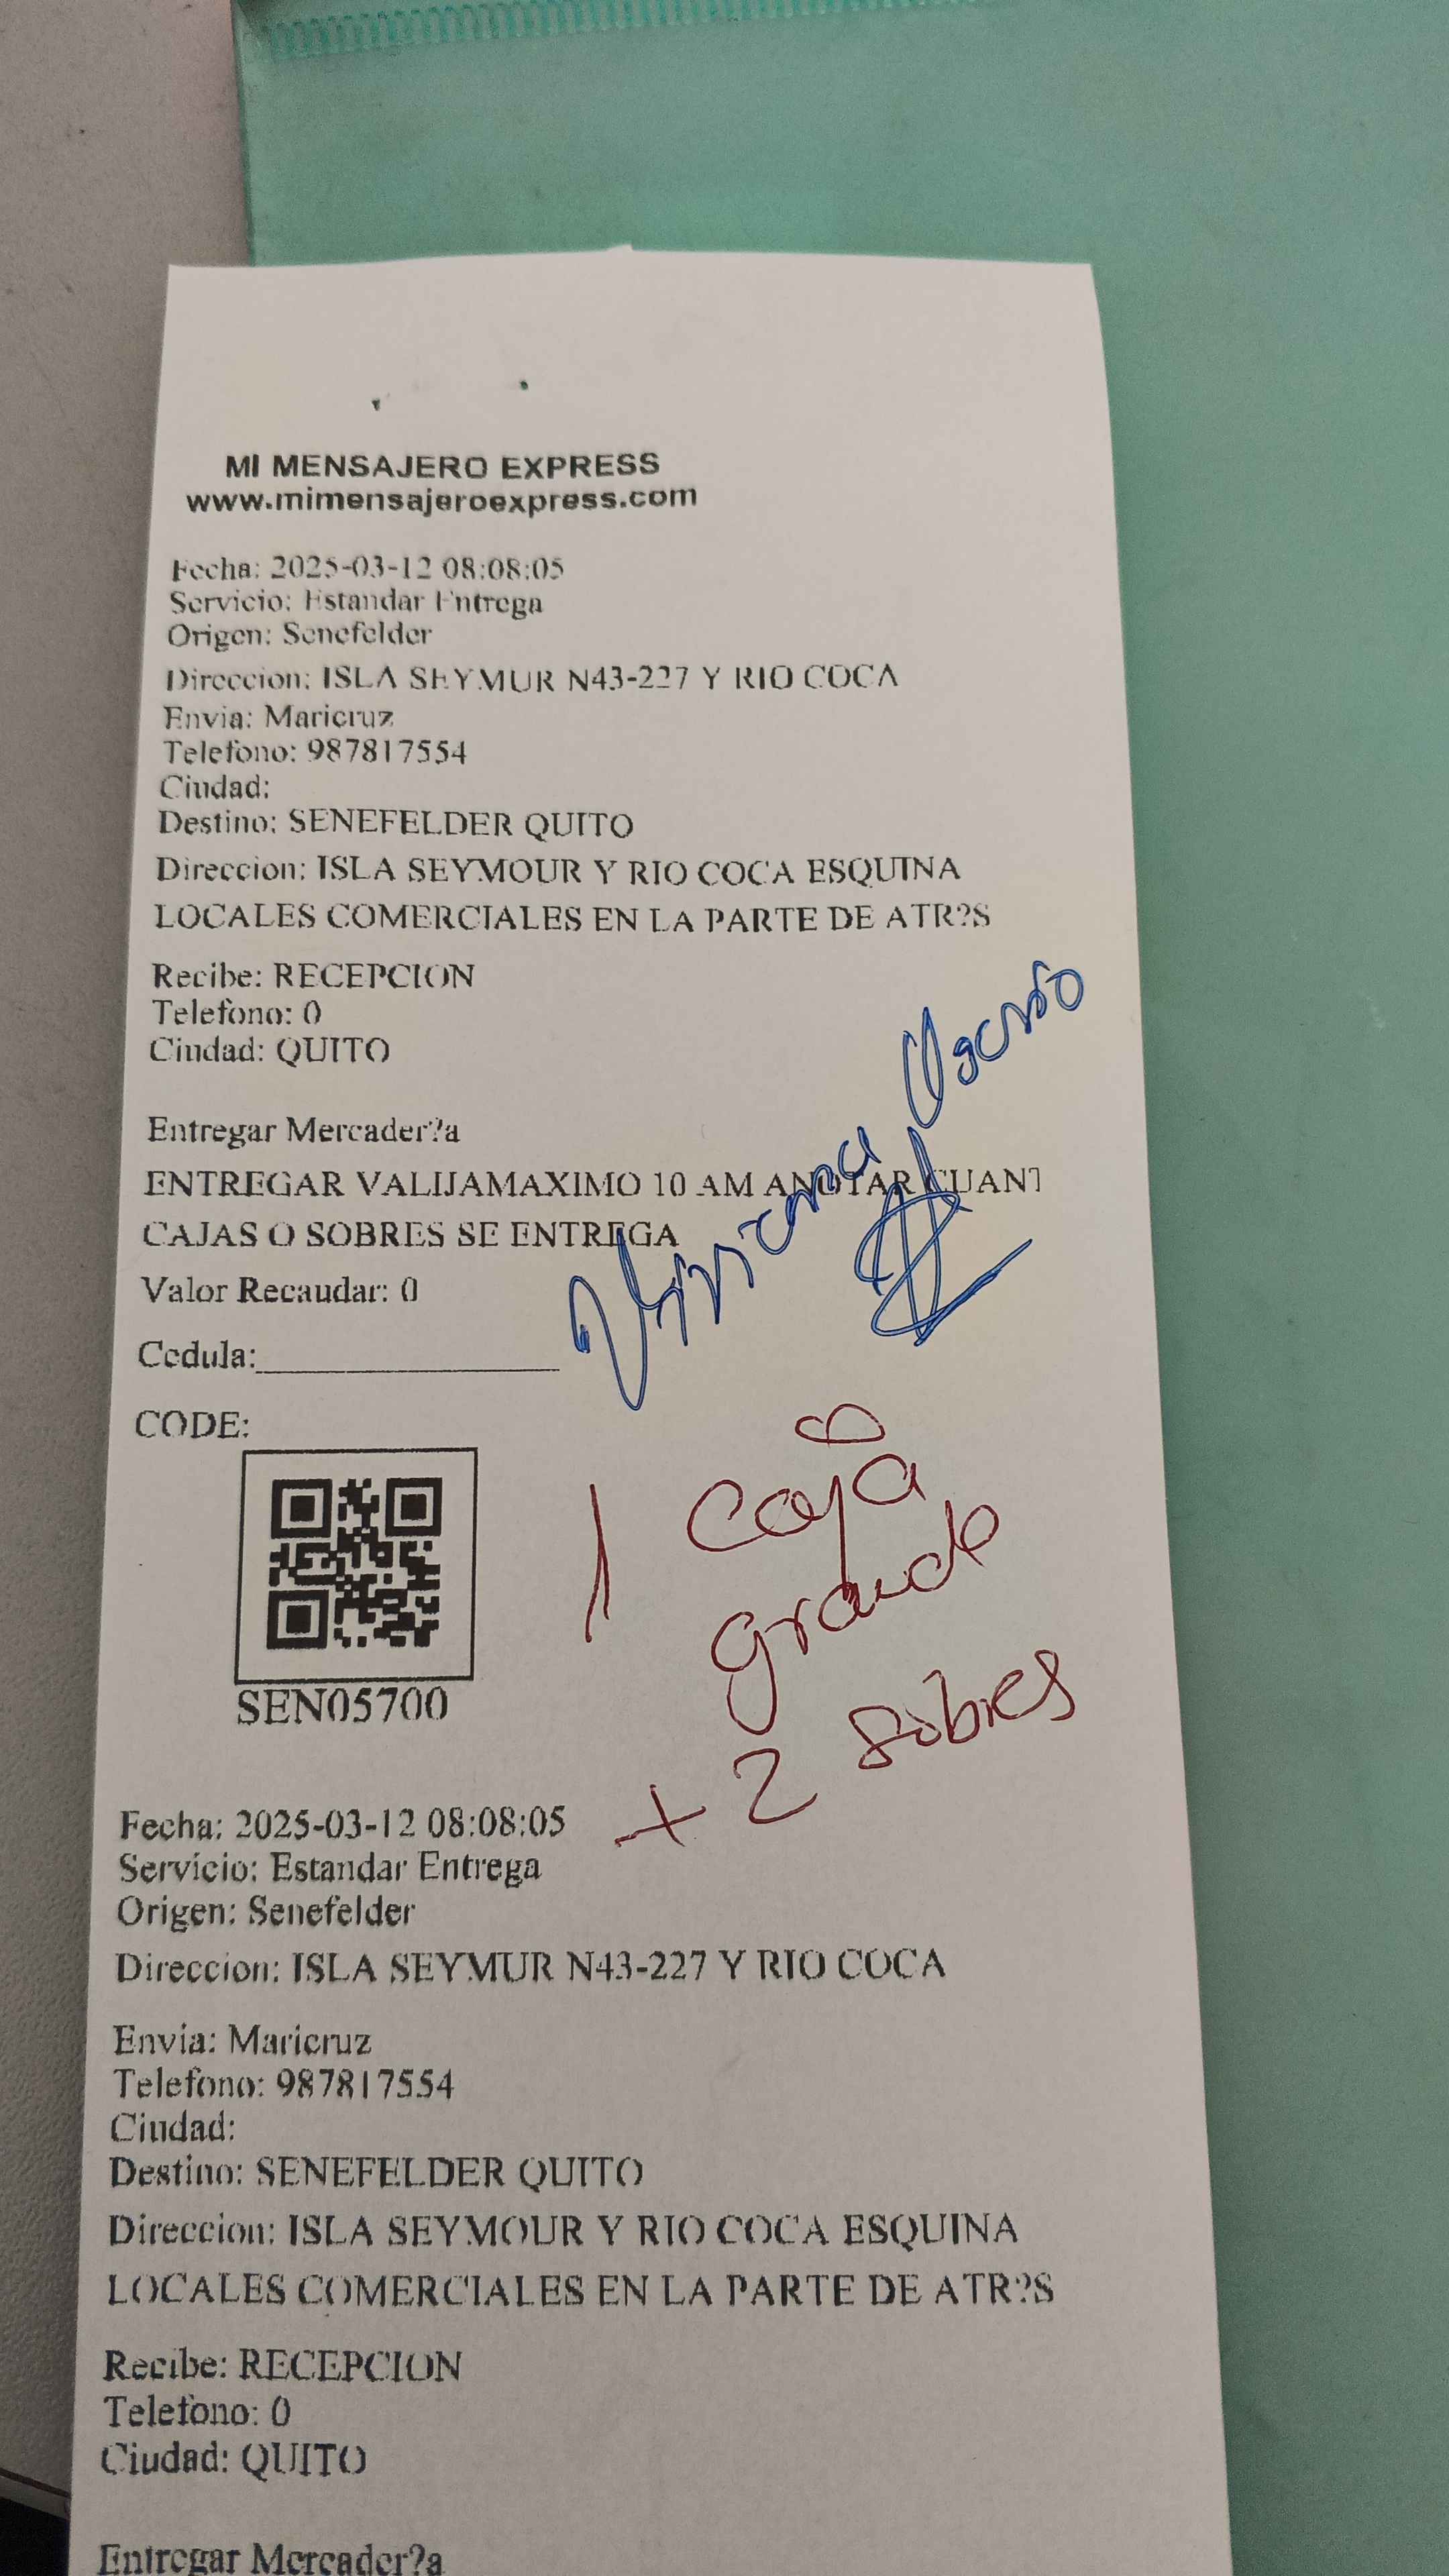 MI MENSAJERO EXPRESS
www.mimensajeroexpress.com
Fecha: 2025-03-12 08:08:05
Servicio: Estandar Entrega
Origen: Senefelder
Direccion: ISLA SEYMUR N43-227 Y RIO COCA
Envia: Maricruz
Telefono: 987817554
Ciudad:
Destino: SENEFELDER QUITO
Direccion: ISLA SEYMOUR Y RIO COCA ESQUINA
LOCALES COMERCIALES EN LA PARTE DE ATR?S
Recibe: RECEPCION
Telefono: 0
Ciudad: QUITO
Entregar Mercader?a
ENTREGAR VALIJAMAXIMO 10 AM ANOTAR CUANT
CAJAS O SOBRES SE ENTREGA
Valor Recaudar: 0
Viviana
Cedula:
CODE:
1 caja
grande
+ 2 sobres
SEN05700
Fecha: 2025-03-12 08:08:05
Servicio: Estandar Entrega
Origen: Senefelder
Direccion: ISLA SEYMUR N43-227 Y RIO COCA
Envia: Maricruz
Telefono: 987817554
Ciudad:
Destino: SENEFELDER QUITO
Direccion: ISLA SEYMOUR Y RIO COCA ESQUINA
LOCALES COMERCIALES EN LA PARTE DE ATR?S
Recibe: RECEPCION
Telefono: 0
Ciudad: QUITO
Entregar Mercader?a